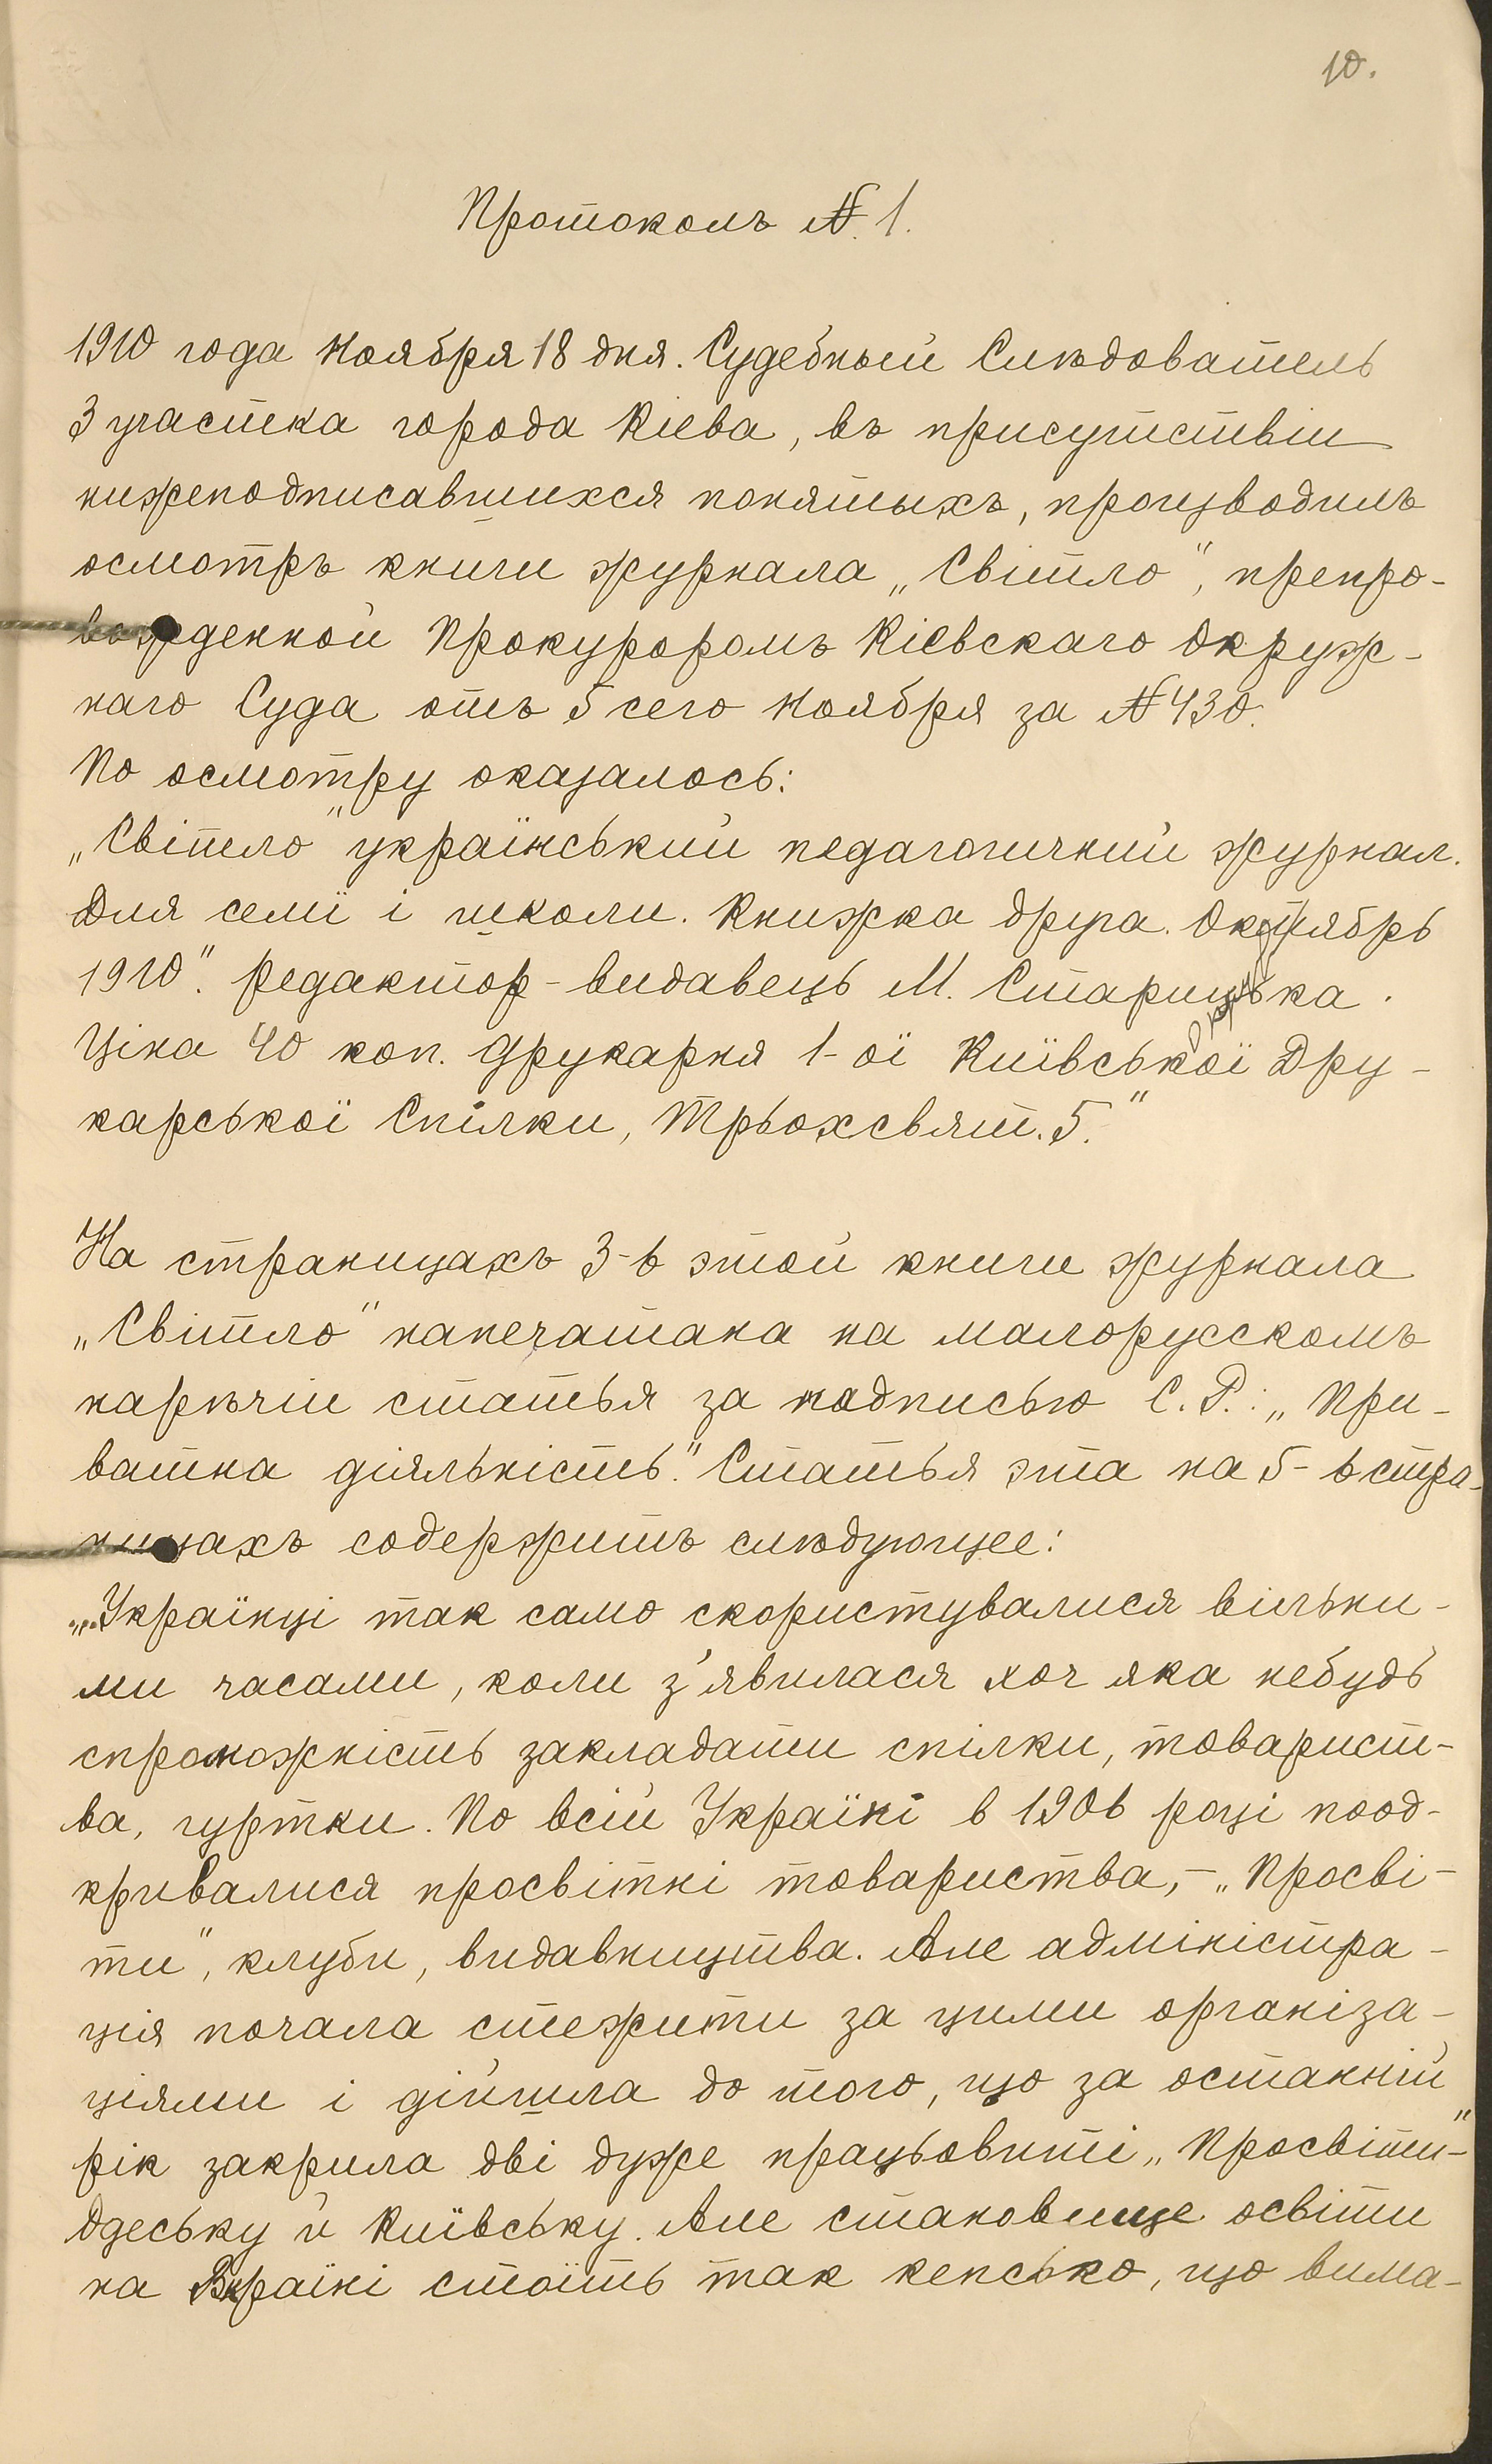 10.
Протоколъ №. 1.
1910 года Ноября 18 дня. Судебный Слѣдователь
3 участка города Кіева, въ присутствіи
нижеподписавшихся понятыхъ, производилъ
осмотръ книги журнала „Світло", препро-
вожденной Прокуроромъ Кіевскаго Окруж-
наго Суда отъ 5 сего Ноября за № 430.
По осмотру оказалось:
„Світло" український педагогичний журнал.
Для семії і школи. Книжка друга. Октябрь
1910". редактор-видавець М. Старицька.
Ціна 40 коп. Друкарня 1-ої Київської Дру-
карської Спілки, Трьохсвят. 5."
На страницахъ 3-6 этой книги журнала
„Світло" напечатана на малорусскомъ
нарѣчіи статья за подписью С. Р.: „При-
ватна діяльність." Статья эта на 5-6 стра-
ницахъ содержитъ слѣдующее:
„...Українці так само скористувалися вільни-
ми часами, коли з'явилася хоч яка небудь
спроможність закладати спілки, товарист-
ва, гуртки. По всій Україні в 1906 році поод-
кривалися просвітні товариства,- „Просві-
ти", клуби, видавництва. Але адміністра-
ція почала стежити за цими організа-
ціями і дійшла до того, що за останній
рік закрила дві дуже працьовиті „Просвіти"-
Одеську й Київську. Але становище освіти
на Вкраїні стоїть так кепсько, що вима-